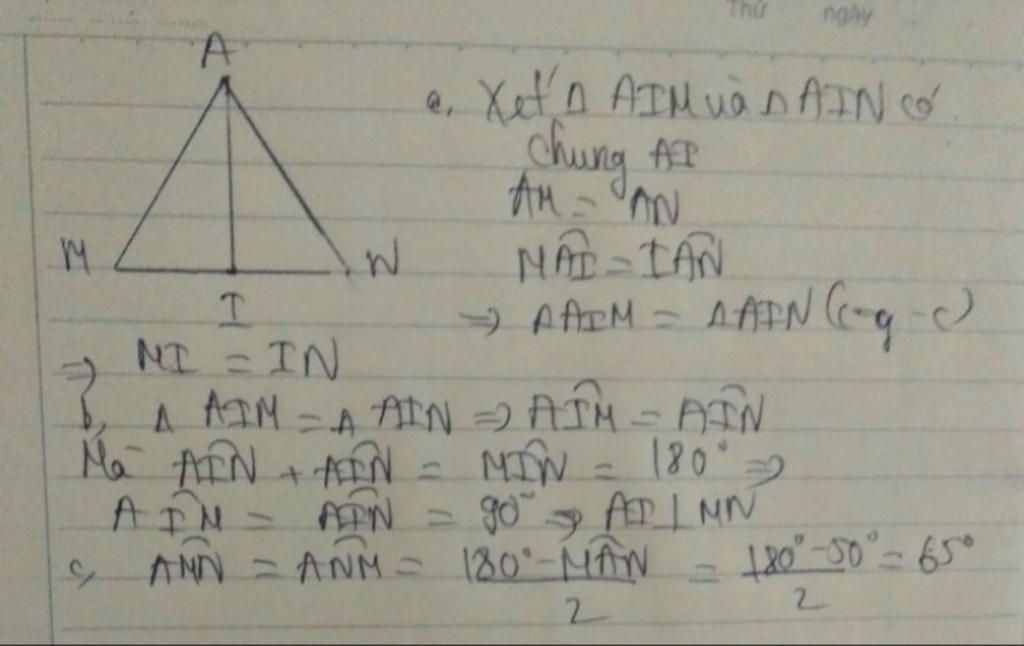 Thứ ngày
A
a. Xét Δ AIM và Δ AIN có
chung AI
AM = AN
MÂI = IÂN
M N
I
=> ΔAIM = ΔAIN (c-g-c)
=> MI = IN
b, Δ AIM = Δ AIN => AÎM = AÎN
Mà AÎN + AÎN = MÎN = 180° =>
AÎM = AÎN = 90° => AI ⊥ MN
c, AM̂N = AN̂M = \frac{180° - MÂN}{2} = \frac{180° - 50°}{2} = 65°